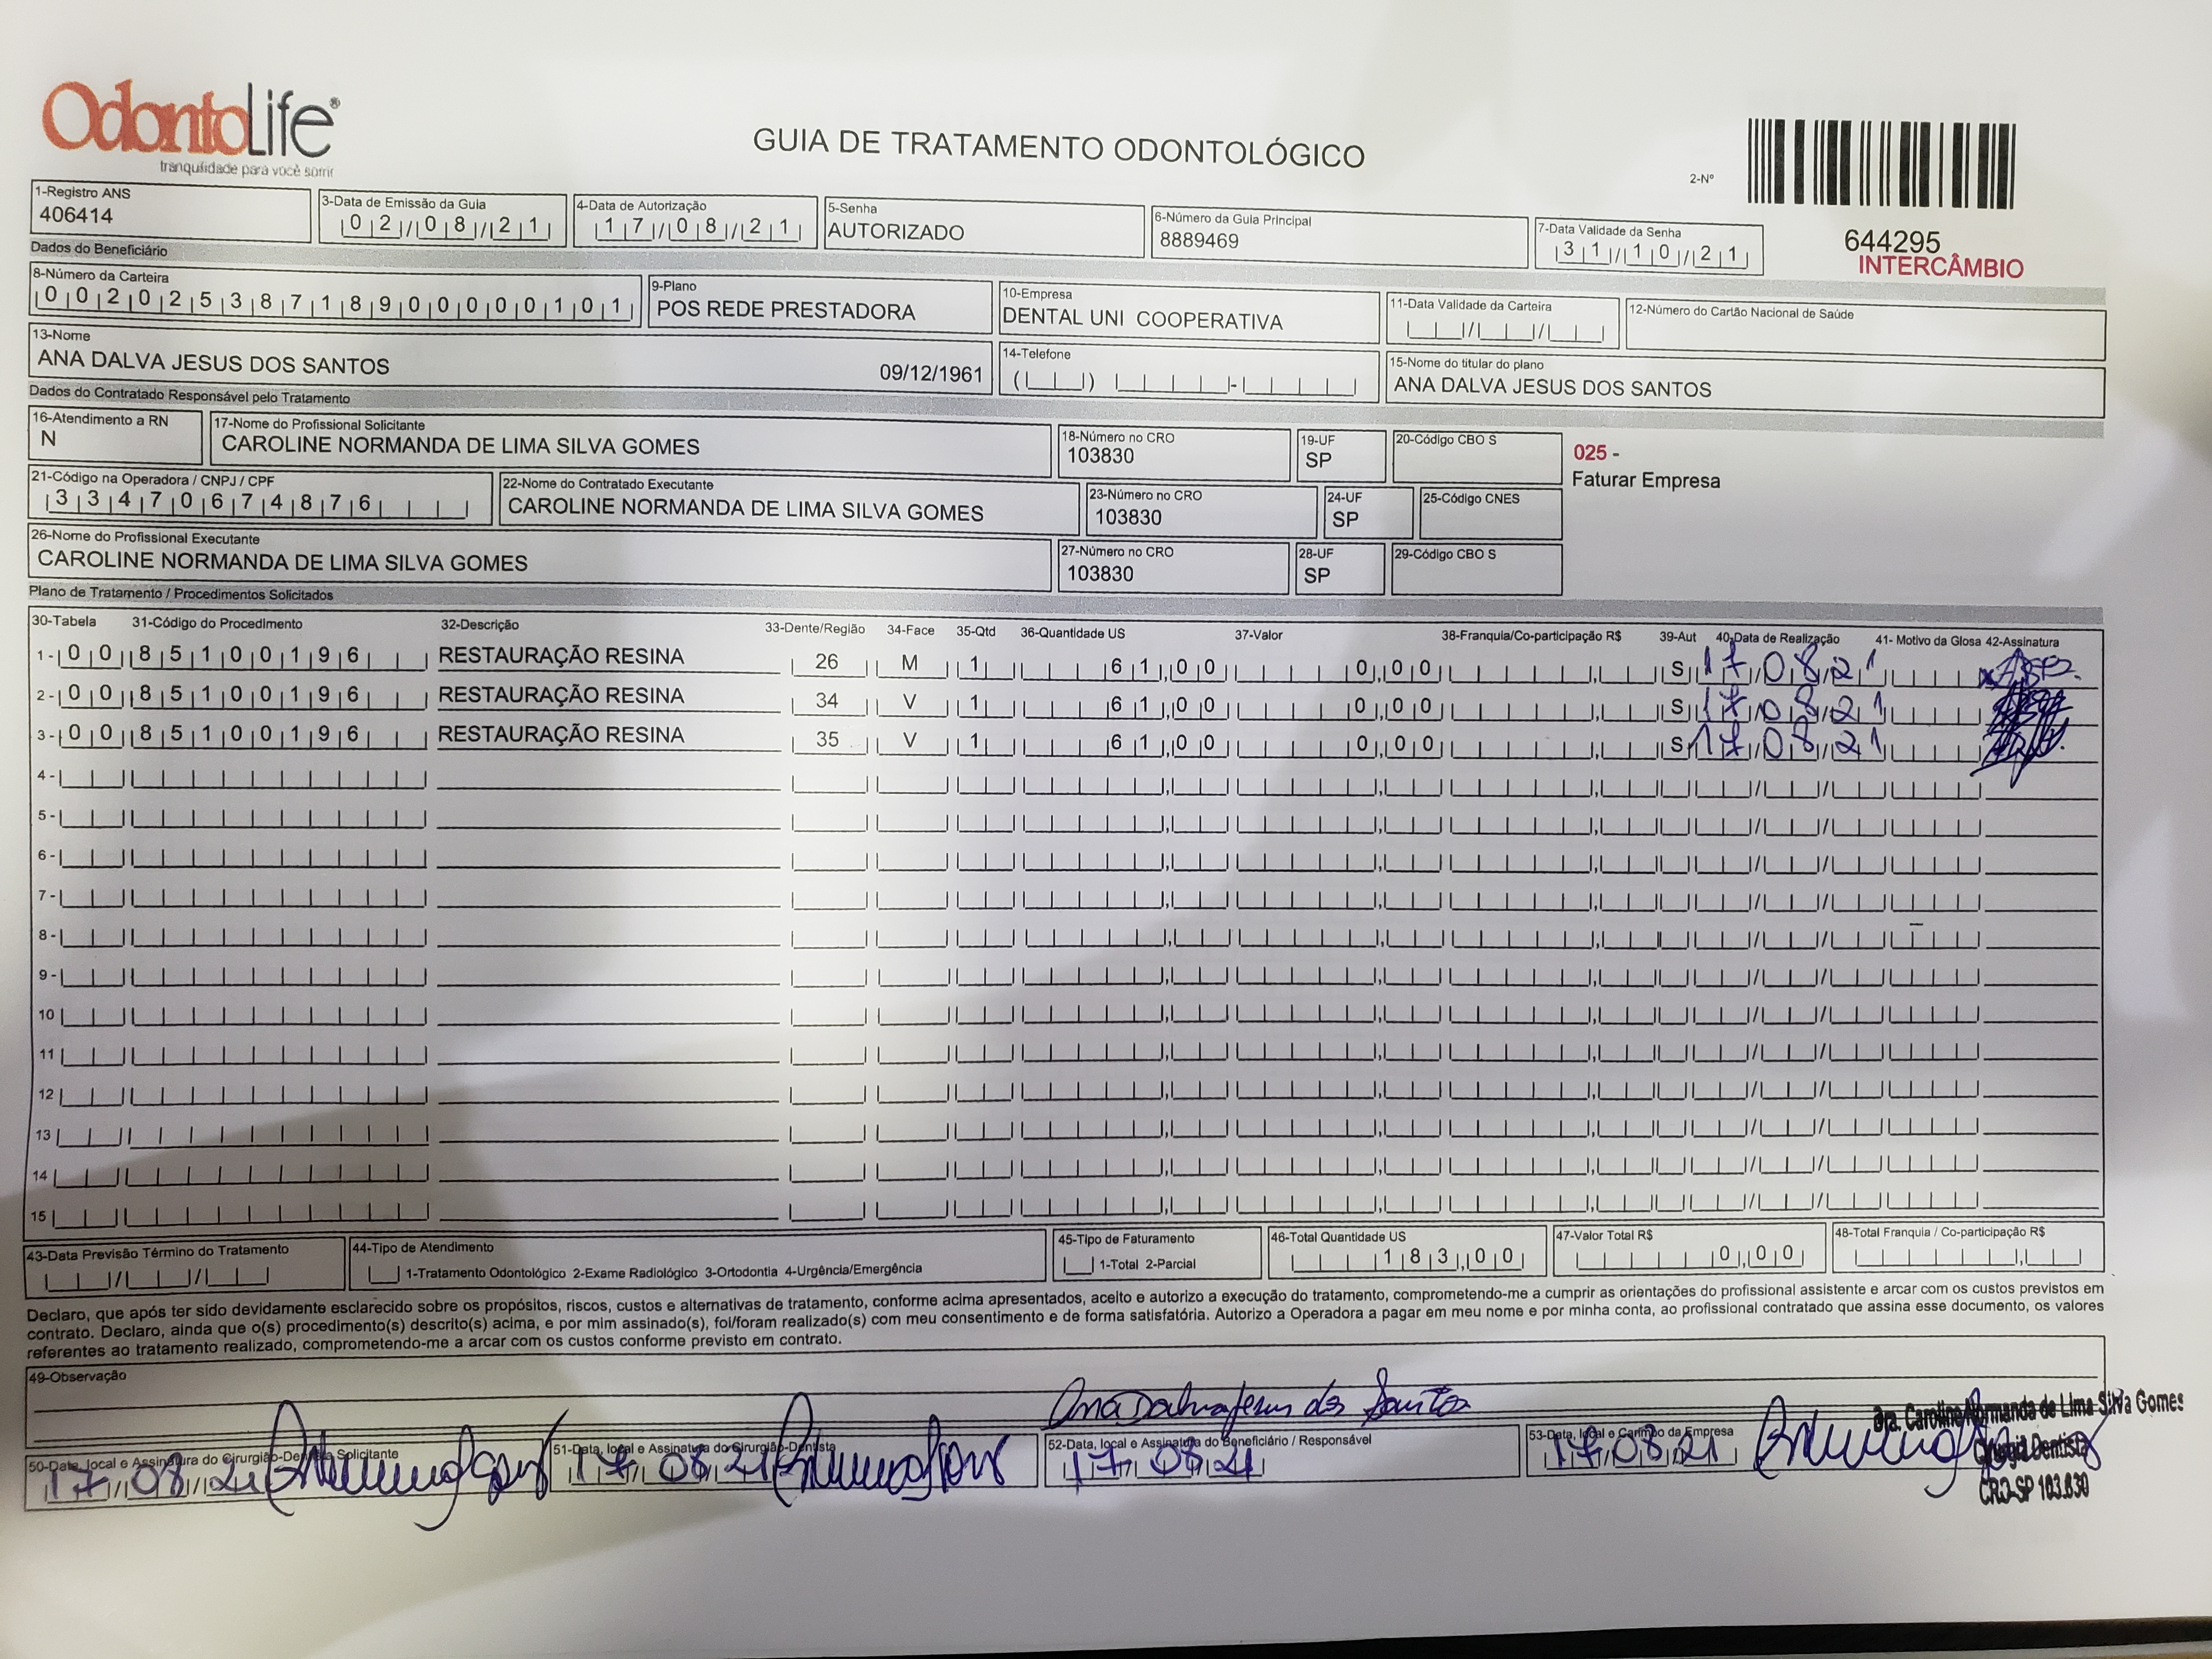 OdontoLife®
tranquilidade para você sorrir
GUIA DE TRATAMENTO ODONTOLÓGICO
2-Nº
644295
INTERCÂMBIO
1-Registro ANS
406414
3-Data de Emissão da Guia
02/08/21
4-Data de Autorização
17/08/21
5-Senha
AUTORIZADO
6-Número da Guia Principal
8889469
7-Data Validade da Senha
31/10/21
Dados do Beneficiário
8-Número da Carteira
00202538718900000101
9-Plano
POS REDE PRESTADORA
10-Empresa
DENTAL UNI COOPERATIVA
11-Data Validade da Carteira
12-Número do Cartão Nacional de Saúde
13-Nome
ANA DALVA JESUS DOS SANTOS 09/12/1961
14-Telefone
15-Nome do titular do plano
ANA DALVA JESUS DOS SANTOS
Dados do Contratado Responsável pelo Tratamento
16-Atendimento a RN
N
17-Nome do Profissional Solicitante
CAROLINE NORMANDA DE LIMA SILVA GOMES
18-Número no CRO
103830
19-UF
SP
20-Código CBO S
025 -
Faturar Empresa
21-Código na Operadora / CNPJ / CPF
33470674876
22-Nome do Contratado Executante
CAROLINE NORMANDA DE LIMA SILVA GOMES
23-Número no CRO
103830
24-UF
SP
25-Código CNES
26-Nome do Profissional Executante
CAROLINE NORMANDA DE LIMA SILVA GOMES
27-Número no CRO
103830
28-UF
SP
29-Código CBO S
Plano de Tratamento / Procedimentos Solicitados
30-Tabela 31-Código do Procedimento 32-Descrição 33-Dente/Região 34-Face 35-Qtd 36-Quantidade US 37-Valor 38-Franquia/Co-participação R$ 39-Aut 40-Data de Realização 41- Motivo da Glosa 42-Assinatura
1- 00 85100196 RESTAURAÇÃO RESINA 26 M 1 61,00 0,00 S 17/08/21
2- 00 85100196 RESTAURAÇÃO RESINA 34 V 1 61,00 0,00 S 17/08/21
3- 00 85100196 RESTAURAÇÃO RESINA 35 V 1 61,00 0,00 S 17/08/21
4-
5-
6-
7-
8-
9-
10
11
12
13
14
15
43-Data Previsão Término do Tratamento
44-Tipo de Atendimento
1-Tratamento Odontológico 2-Exame Radiológico 3-Ortodontia 4-Urgência/Emergência
45-Tipo de Faturamento
1-Total 2-Parcial
46-Total Quantidade US
183,00
47-Valor Total R$
0,00
48-Total Franquia / Co-participação R$
Declaro, que após ter sido devidamente esclarecido sobre os propósitos, riscos, custos e alternativas de tratamento, conforme acima apresentados, aceito e autorizo a execução do tratamento, comprometendo-me a cumprir as orientações do profissional assistente e arcar com os custos previstos em
contrato. Declaro, ainda que o(s) procedimento(s) descrito(s) acima, e por mim assinado(s), foi/foram realizado(s) com meu consentimento e de forma satisfatória. Autorizo a Operadora a pagar em meu nome e por minha conta, ao profissional contratado que assina esse documento, os valores
referentes ao tratamento realizado, comprometendo-me a arcar com os custos conforme previsto em contrato.
49-Observação
50-Data, local e Assinatura do Cirurgião-Dentista Solicitante
17/08/21
51-Data, local e Assinatura do Cirurgião-Dentista
17/08/21
Ana Dalva Jesus dos Santos
52-Data, local e Assinatura do Beneficiário / Responsável
17/08/21
53-Data, local e Carimbo da Empresa
17/08/21
Dra. Caroline Normanda de Lima Silva Gomes
Cirurgiã Dentista
CRO-SP 103.830